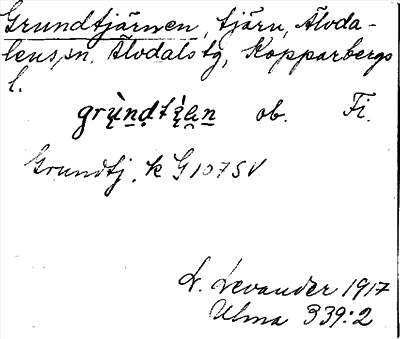 Grundtjärnen, tjärn, Älvda-
lens sn, Älvdals tg, Kopparbergs
l.
ob. Fi.
Grundtj. k G 107 SV
L. Levander 1917
Ulma 339:2